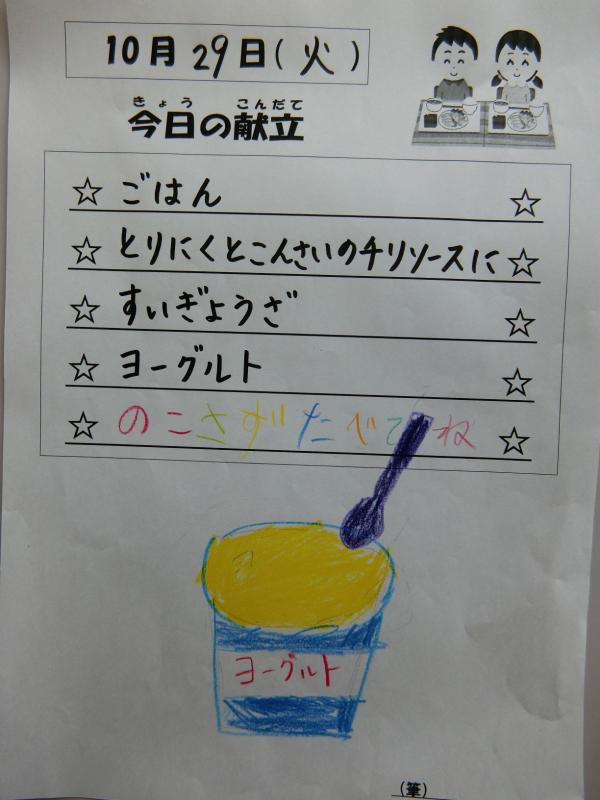 10月29日(火)
きょう こんだて
今日の献立
☆ ごはん ☆
☆ とりにくとこんさいのチリソースに ☆
☆ すいぎょうざ ☆
☆ ヨーグルト ☆
☆ のこさずたべてね ☆
ヨーグルト
(筆)